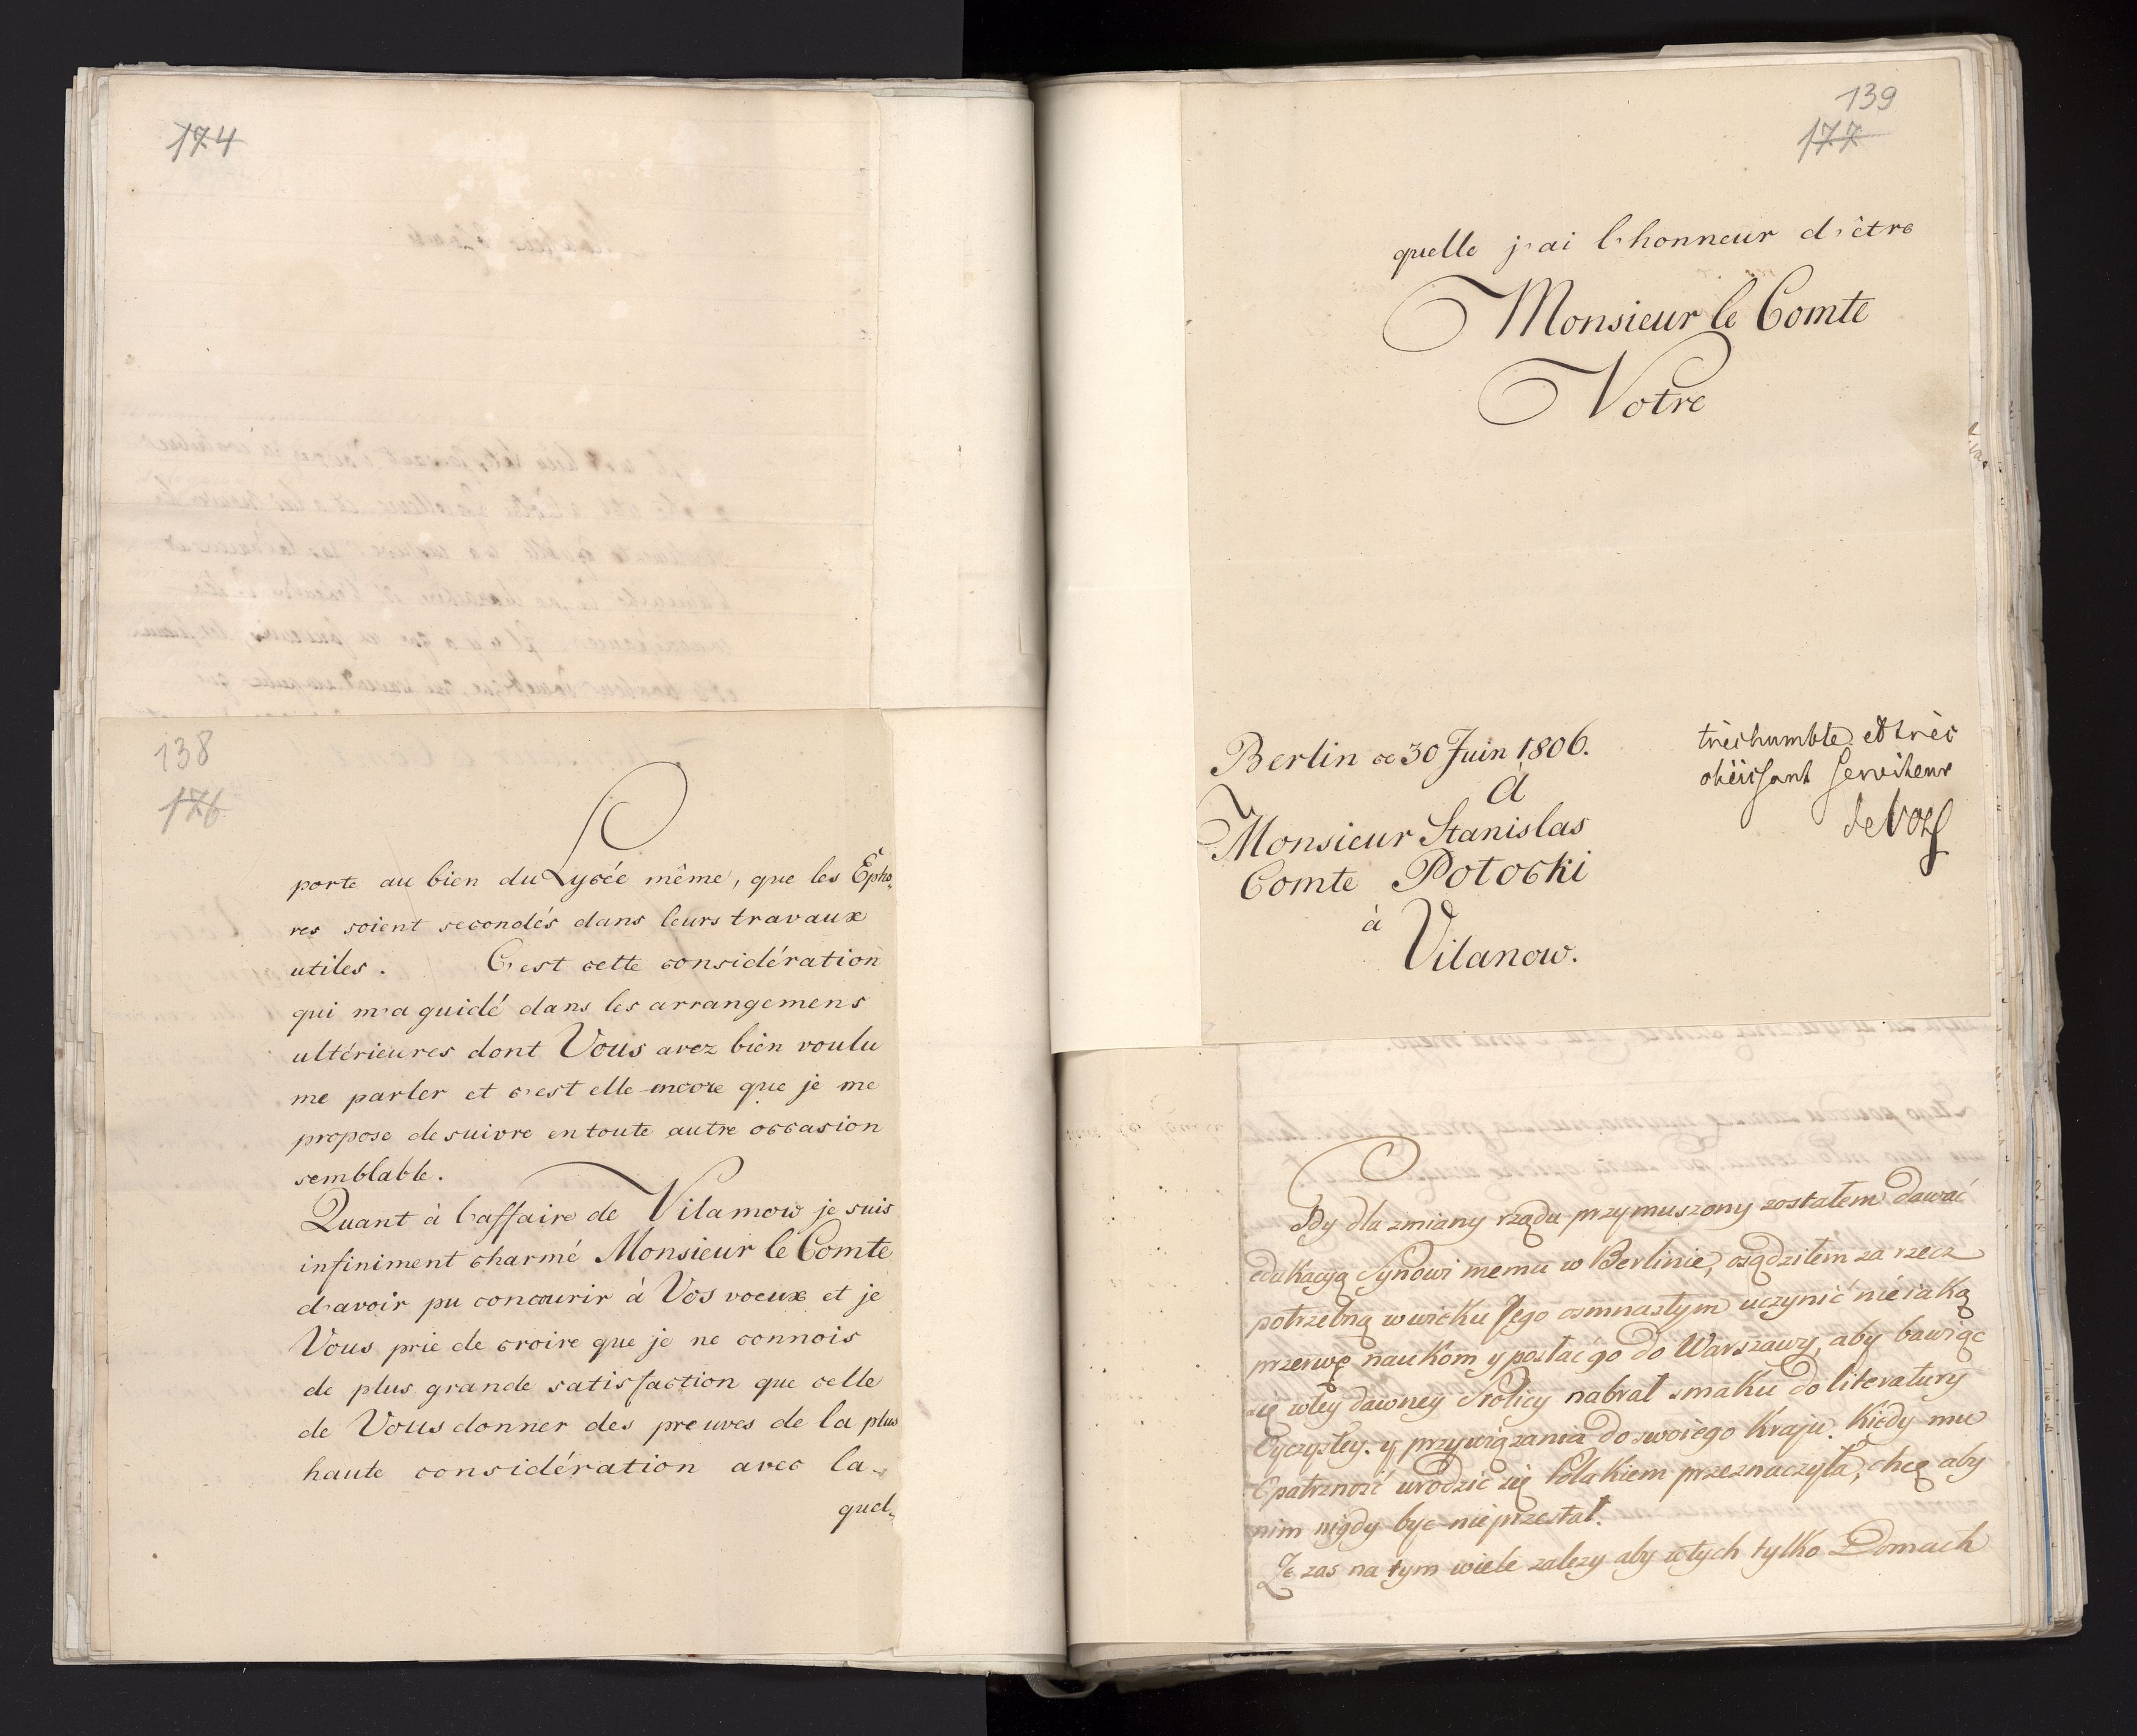 174
138
176
porte au bien du Lycée même, que les Épho-
res soient secondés dans leurs travaux
utiles. C'est cette considération
qui m'a guidé dans les arrangemens
ultérieures dont Vous avez bien voulu
me parler et c'est elle encore que je me
propose de suivre en toute autre occasion
semblable.
Quant à l'affaire de Vilamow je suis
infiniment charmé Monsieur le Comte
d'avoir pu concourir à Vos voeux et je
Vous prie de croire que je ne connois
de plus grande satisfaction que celle
de Vous donner des preuves de la plus
haute considération avec la-
quel-
139
177
quelle j'ai l'honneur d'être
Monsieur le Comte
Votre
très humble et très
obéissant serviteur
de Voss
Berlin ce 30 Juin 1806.
à
Monsieur Stanislas
Comte Potocki
à
Vilanow.
Gdy dla zmiany rządu przymuszony zostałem dawać
edukacyą Synowi memu w Berlinie, osądziłem za rzecz
potrzebną w wieku Jego osmnastym uczynić nieiaką
przerwę naukom y posłać go do Warszawy, aby bawiąc
się w tey dawney Stolicy nabrał smaku do literatury
Oyczystey. y przywiązania do swoiego Kraju. Kiedy mu
Opatrzność urodzić się Polakiem przeznaczyła, chcę aby
nim nigdy być nie przestał.
Że zas na tym wiele zalezy aby w tych tylko Domach